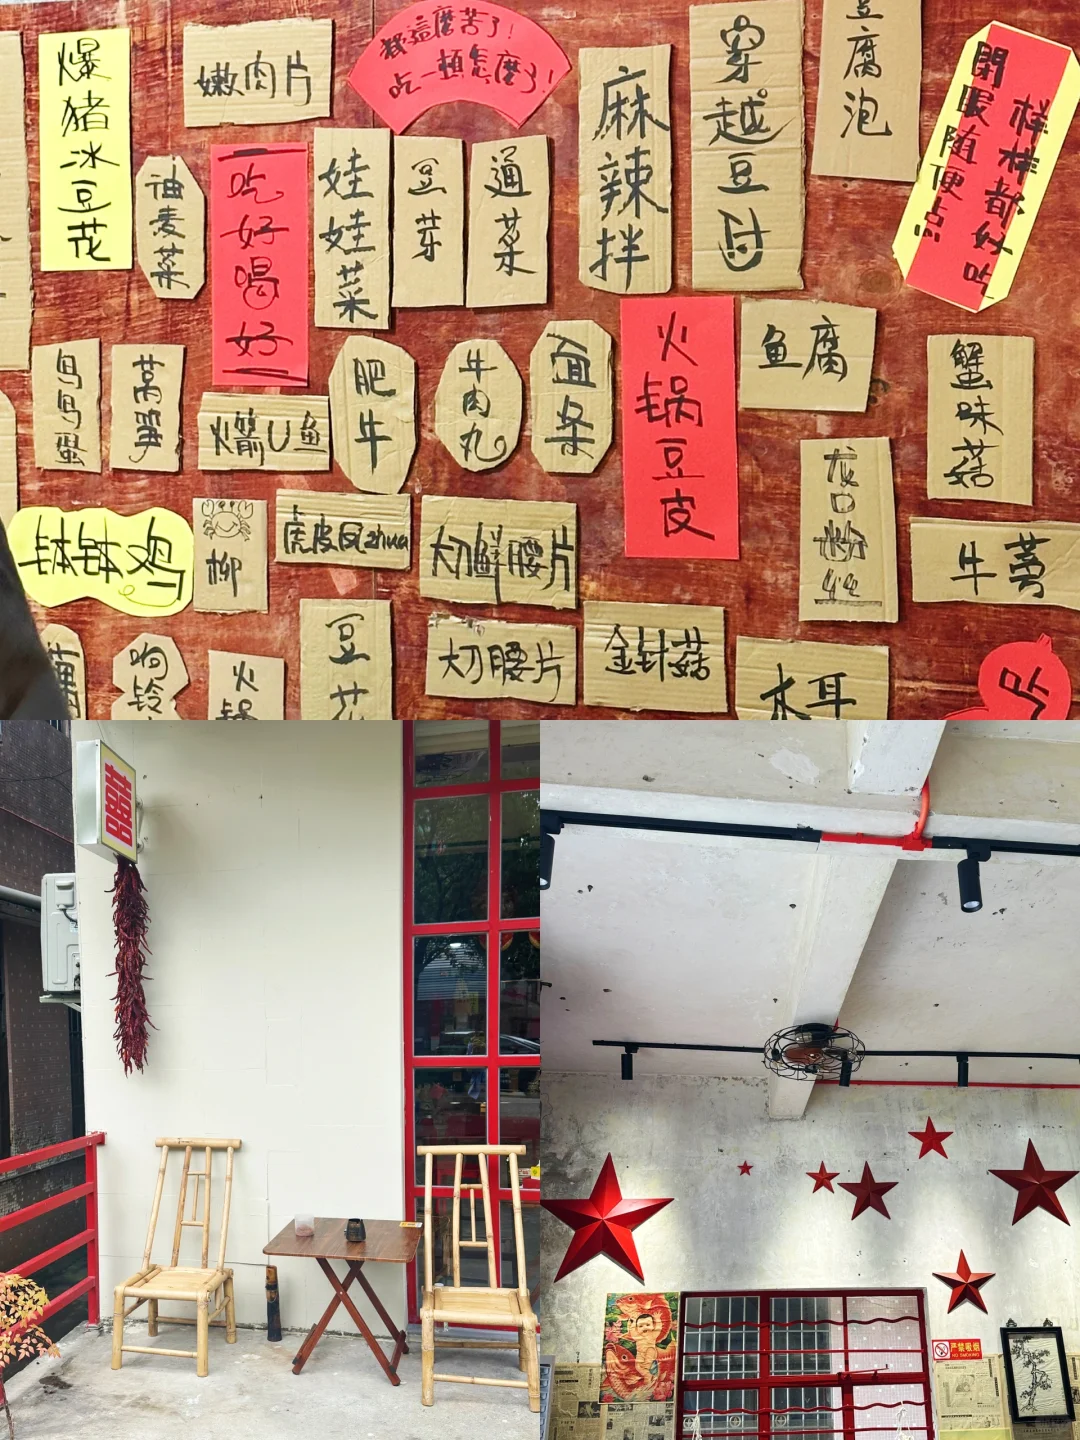 爆猪冰豆花
嫩肉片
都這麼苦了!
吃一頓怎麼了!
麻辣拌
穿越豆过
豆腐泡
样样都好吃
閉眼随便点
油麦菜
吃好喝好
娃娃菜
豆芽
通菜
鸟鸟蛋
莴笋
火箭U鱼
肥牛
牛肉丸
面条
火锅豆皮
鱼腐
蟹味菇
钵钵鸡
柳
虎皮凤zhua
大刀鲜腰片
龙口粉丝
牛蒡
响铃
火锅
豆花
大刀腰片
金针菇
木耳
吃
囍
严禁吸烟
NO SMOKING